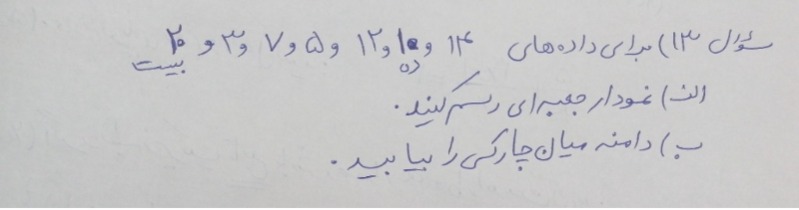 سؤال ۱۳) برای داده‌های ۱۴ و ۱۰ و ۱۲ و ۵ و ۷ و ۳ و ۲۰
ده بیست
الف) نمودار جعبه ای رسم کنید.
ب) دامنه میان چارکی را بیابید.